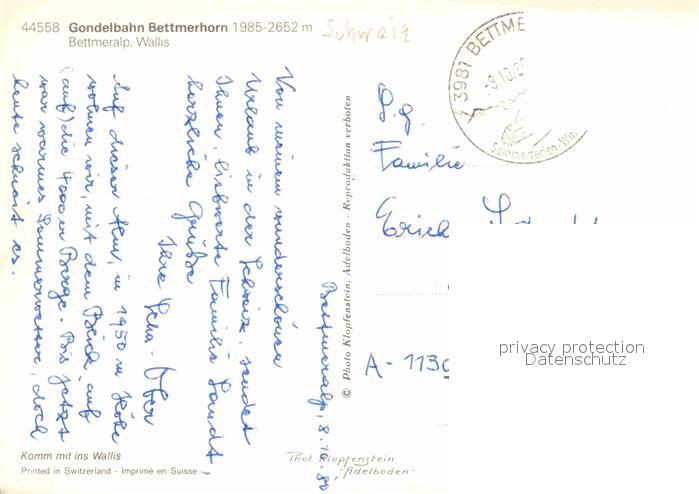 44558 Gondelbahn Bettmerhorn 1985-2652 m
Bettmeralp, Wallis
Schweiz
3981 BETTME
-8.10.8
Sommerferien-Win
Bettmeralp, 8.10.80
Von meinem wunderschönen
Urlaub in der Schweiz, sendet
Ihnen, liebwerte Familie
herzliche Grüße
Ihre
Auf dieser Alm, in 1950 m Höhe
wohnen wir, mit dem Blick auf
(auf) die 4000 m Berge. Bis jetzt
war warmes Sommerwetter, doch
heute schneit es.
© Photo Klopfenstein, Adelboden - Reproduktion verboten
Familie
Erich
A-1130
privacy protection
Datenschutz
Komm mit ins Wallis
Printed in Switzerland - Imprimé en Suisse
Phot. Klopfenstein
-Adelboden-